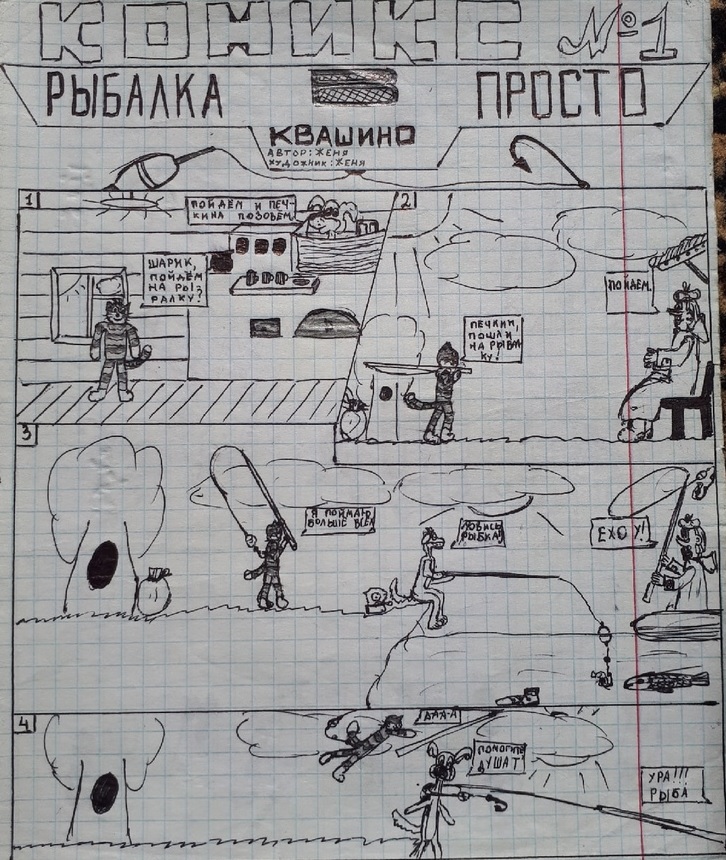 КОМИКС №1
РЫБАЛКА ПРОСТО
КВАШИНО
АВТОР: ЖЕНЯ
ХУДОЖНИК: ЖЕНЯ
1
ПОЙДЁМ И ПЕЧ-
КИНА ПОЗОВЁМ
ШАРИК,
ПОЙДЁМ
НА РЫБ
АЛКУ?
2
ПОЙДЁМ.
ПЕЧКИН,
ПОШЛИ
НА РЫБАЛ
КУ!
3
Я ПОЙМАЮ
БОЛЬШЕ ВСЕХ
ЛОВИСЬ
РЫБКА!
ЕХОУ!
4
АААА
ПОМОГИТЕ
ДУШАТ!
УРА!!!
РЫБА